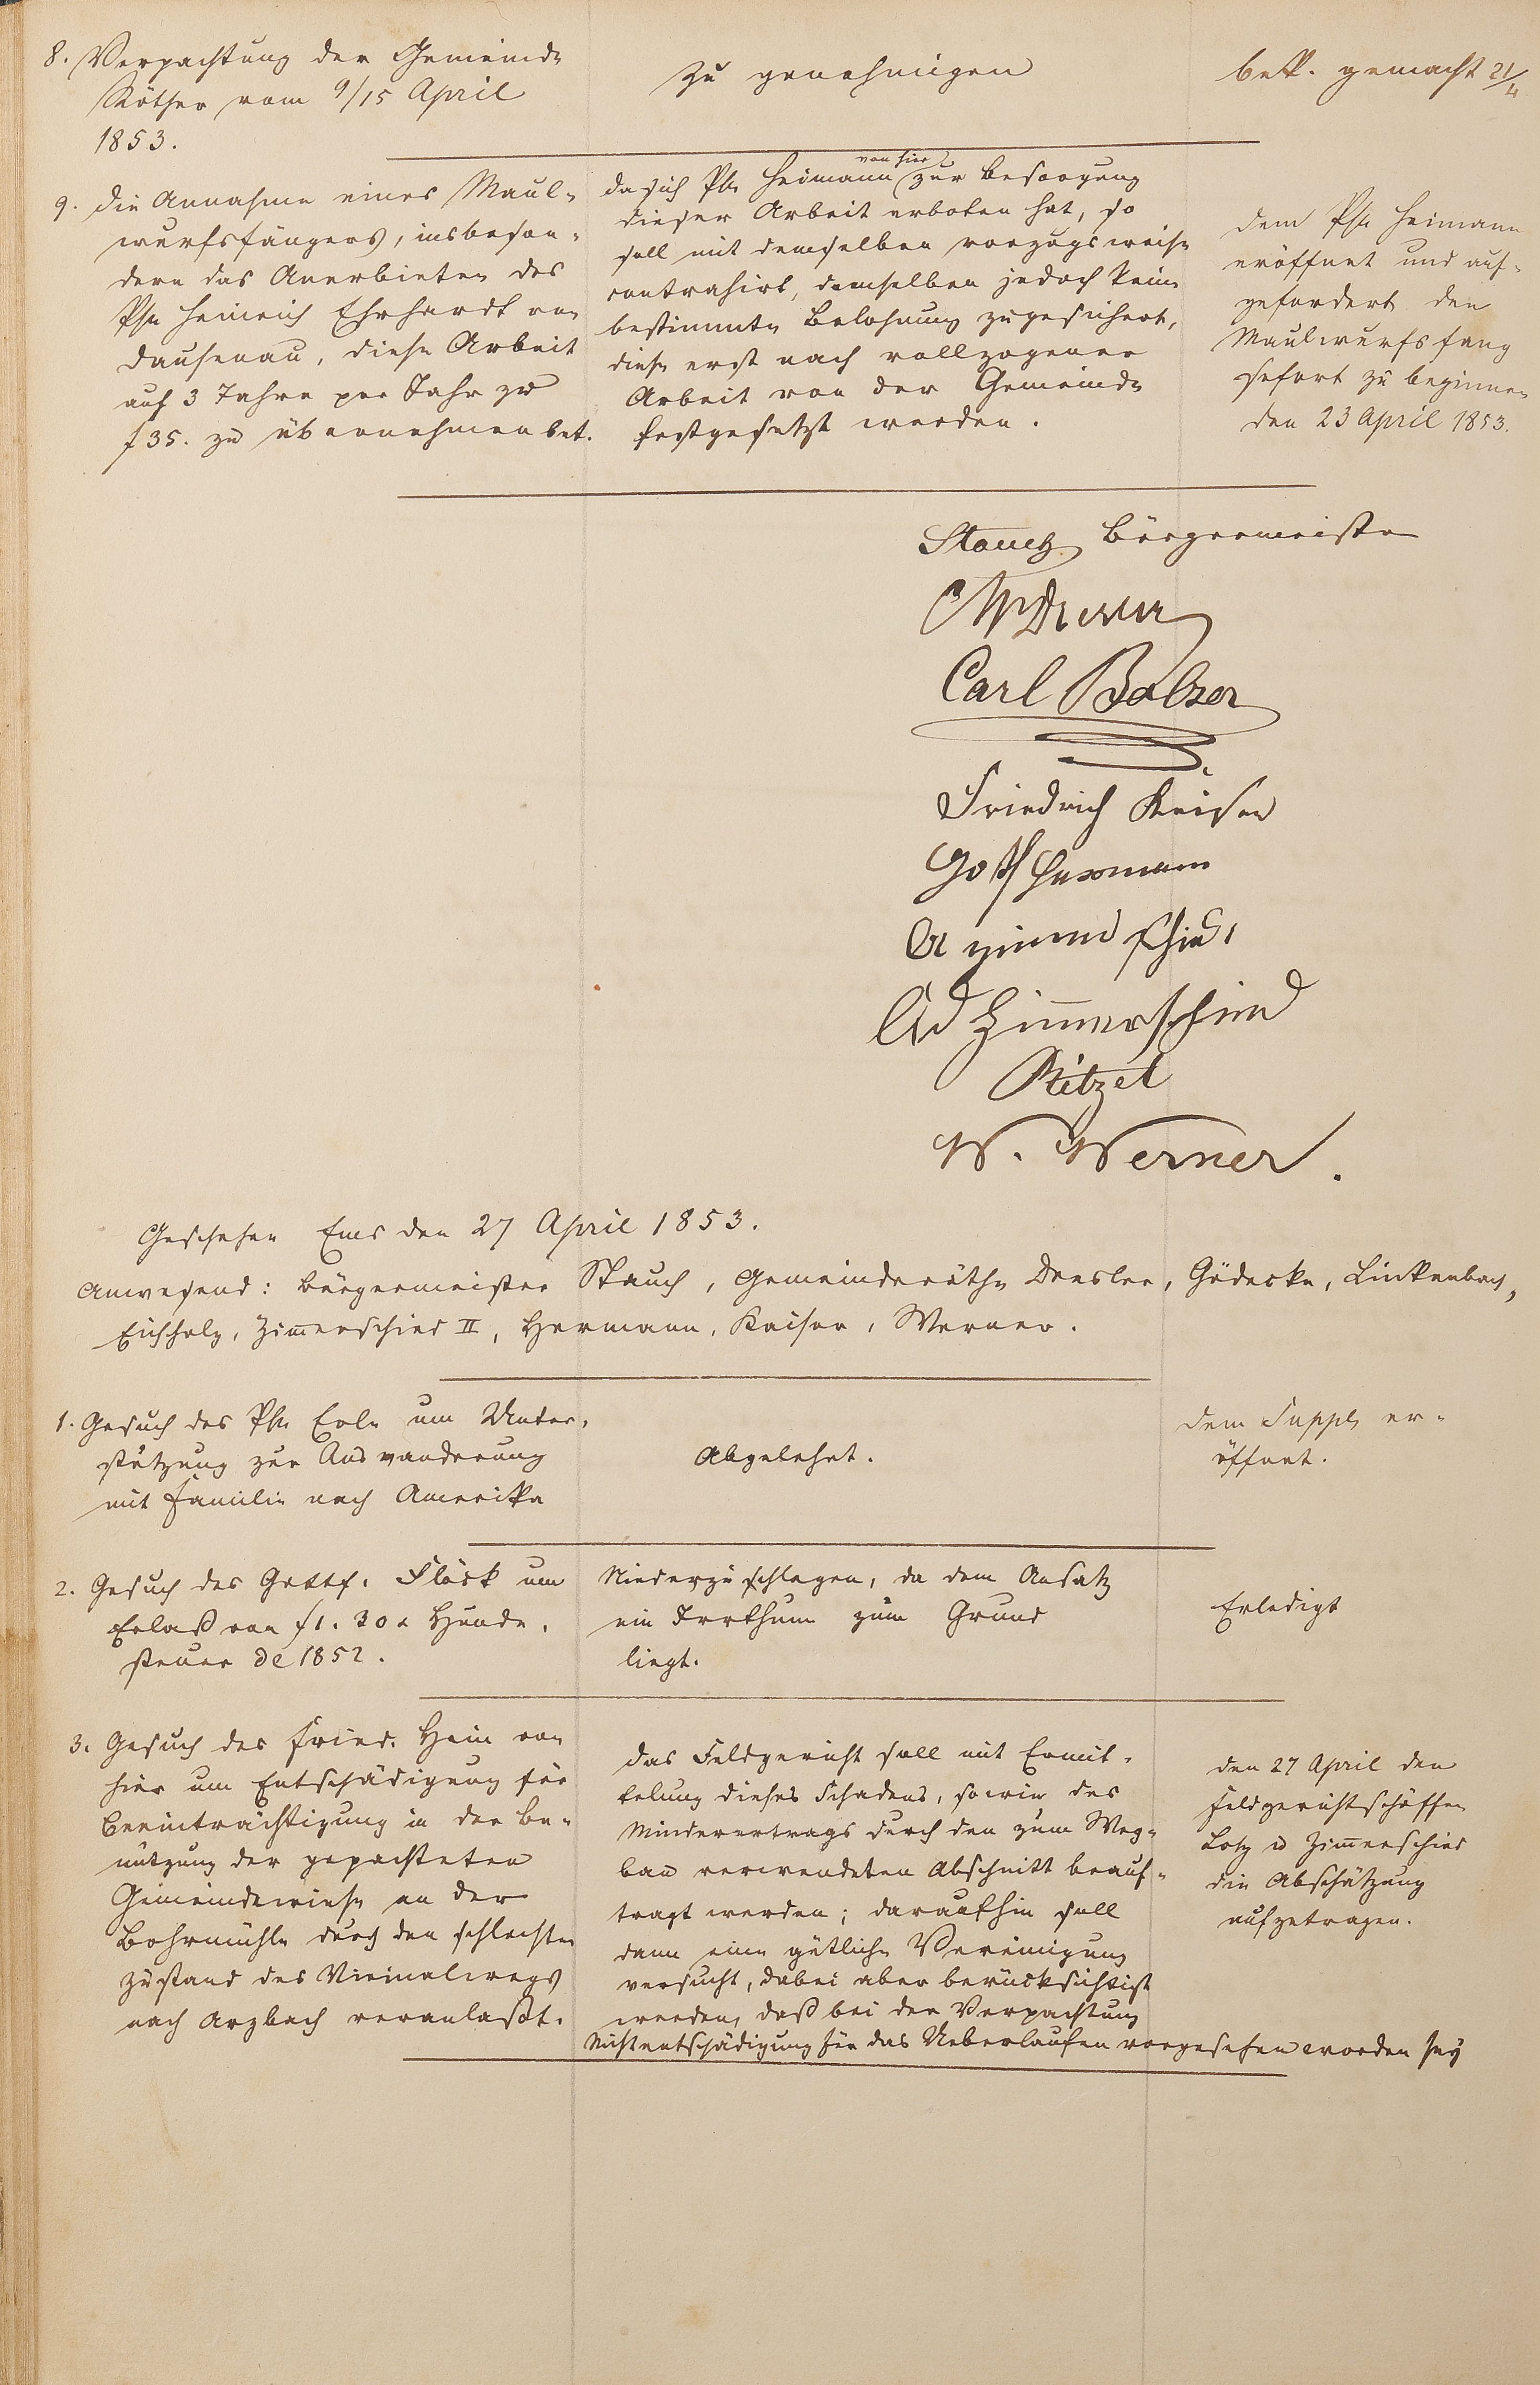 8. Verpachtung der Gemeinde
zu genehmigen
bekt. gemacht 21/4
Köther vom 9/15 April
1853.
9. die Annahme eines Maul-
wurfsfängers, insbeson-
dere das Anerbieten des
Ph. Heinrich Ehrhardt von
Dausenau, diese Arbeit
auf 3 Jahre per Jahr zu
f 35. zu übernehmen bet.
da sich Ph. Heimann von hier zur Besorgung
dieser Arbeit erboten hat, so
soll mit demselben vorzugsweise
contrahirt, demselben jedoch keine
bestimmte Belohnung zugesichert,
diese erst nach vollzogener
Arbeit von der Gemeinde
festgesetzt werden.
dem Ph. Heimann
eröffnet und auf-
gefordert den
Maulwurfsfang
sofort zu beginnen
den 23 April 1853.
Stauch Bürgermeister
Carl Balzer
Friedrich Keiser
Gottf Hermann
Ad Zimmerschied
Ritzel
W. Werner.
Geschehen Ems den 27 April 1853.
Anwesend: Bürgermeister Stauch, Gemeinderäthe Dresler, Gödecke, Linkenbach,
Eichholz, Zimmerschied II, Hermann, Kaiser, Werner.
1. Gesuch des Ph. Erle um Unter-
stützung zur Auswanderung
mit Familie nach Amerika
Abgelehnt.
dem Suppl. er-
öffnet.
2. Gesuch des Gottf. Flöck um
Erlaß von f 1. 30 x Hunde-
steuer de 1852.
Niederzuschlagen, da dem Ansatz
ein Irrthum zum Grund
liegt.
Erledigt
3. Gesuch des Fried. Hein von
hier um Entschädigung für
Beeinträchtigung in der Be-
nutzung der gepachteten
Gemeindewiese an der
Bohrmühle durch den schlechten
Zustand des Vicinalwegs
nach Arzbach veranlaßt.
das Feldgericht soll mit Ermit-
telung dieses Schadens, sowie des
Minderertrags durch den zum Weg-
bau verwendeten Abschnitt beauf-
tragt werden; daraufhin soll
dann eine gütliche Vereinigung
versucht, dabei aber berücksichtigt
werden, daß bei der Verpachtung
Nichtentschädigung für das Ueberlaufen vorgesehen worden sey
den 27 April den
Feldgerichtschöffen
Lotz u Zimmerschied
die Abschätzung
aufgetragen.